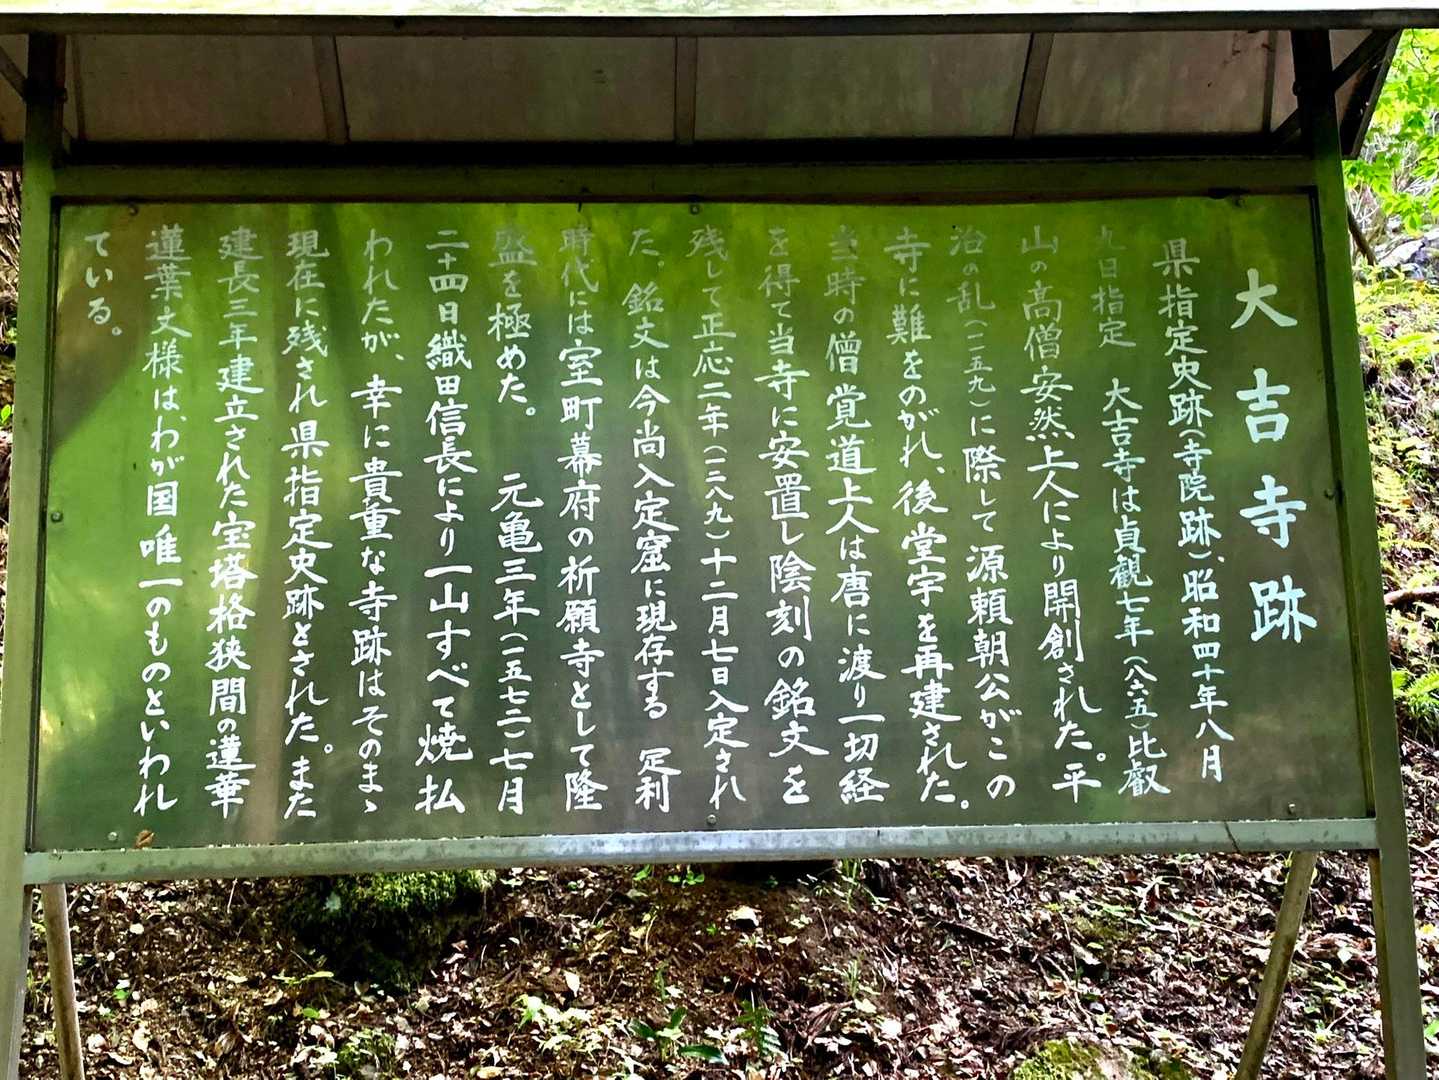 大吉寺跡
県指定史跡(寺院跡)、昭和四十年八月
九日指定　大吉寺は貞観七年(八六五)比叡
山の高僧安然上人により開創された。平
治の乱(一一五九)に際して源頼朝公がこの
寺に難をのがれ、後堂宇を再建された。
当時の僧覚道上人は唐に渡り一切経
を得て当寺に安置し陰刻の銘文を
残して正応二年(一二八九)十二月七日入定され
た。銘文は今尚入定窟に現存する　足利
時代には室町幕府の祈願寺として隆
盛を極めた。　元亀三年(一五七二)七月
二十四日織田信長により一山すべて焼払
われたが、幸に貴重な寺跡はそのまゝ
現在に残され県指定史跡とされた。また
建長三年建立された宝塔格狭間の蓮華
蓮葉文様は、わが国唯一のものといわれ
ている。